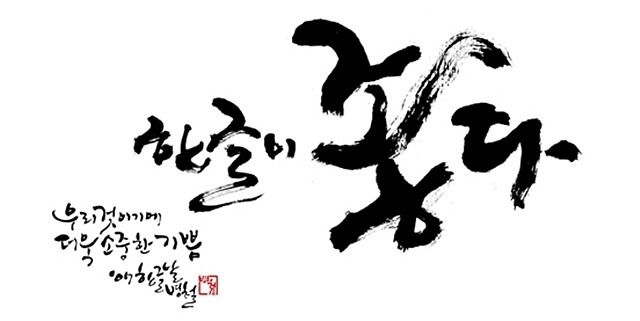 한글이 좋다
우리것이기에
더욱 소중한 기쁨
한글날